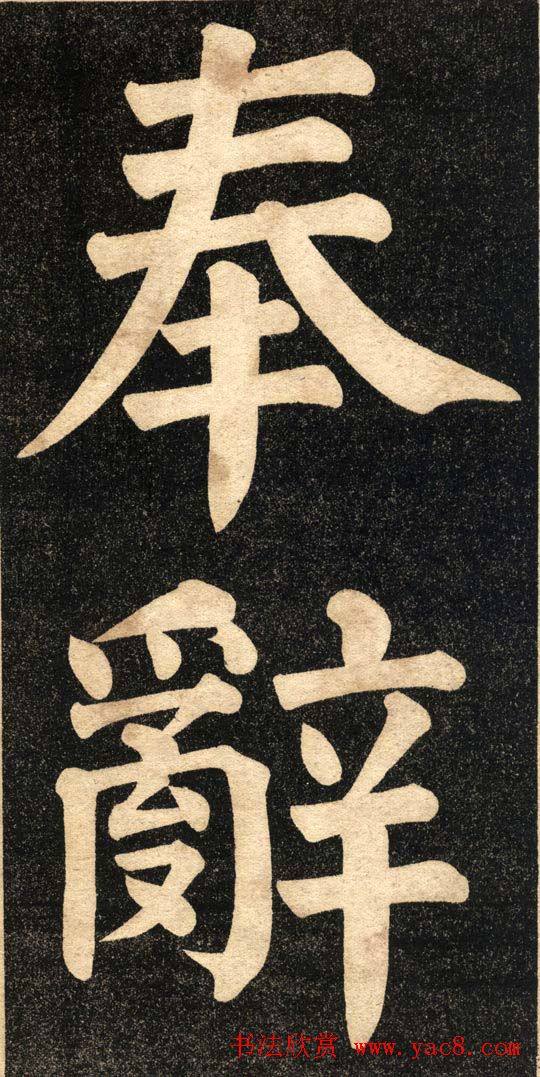 奉
辭
书法欣赏 www.yac8.com